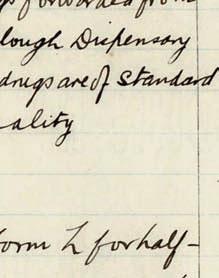 forwarded from
lough Dispensary
drugs are of Standard
ality
orm h for half-